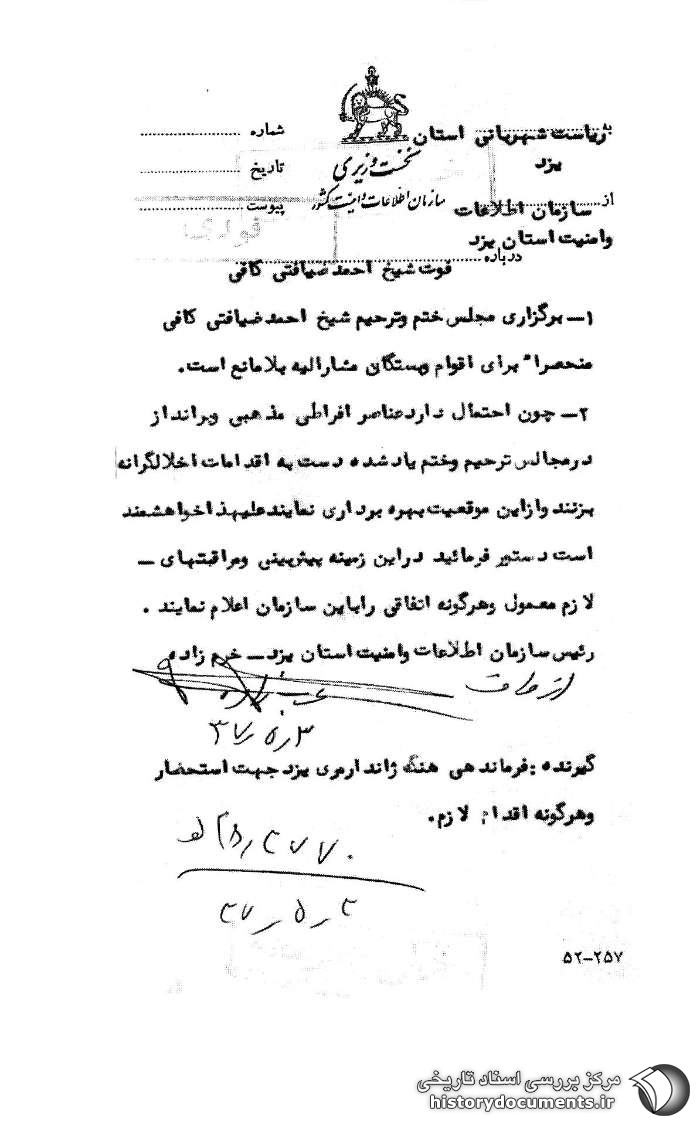 به ریاست شهربانی استان
یزد
شماره
تاریخ
پیوست
نخست وزیری
سازمان اطلاعات و امنیت کشور
از سازمان اطلاعات
وامنیت استان یزد
فوری
درباره فوت شیخ احمد ضیافتی کافی
۱ــ برگزاری مجلس ختم وترحیم شیخ احمد ضیافتی کافی
منحصراً برای اقوام وبستگان مشارالیه بلامانع است.
۲ــ چون احتمال دارد عناصر افراطی مذهبی وبرانداز
درمجالس ترحیم وختم یاد شده دست به اقدامات اخلالگرانه
بزنند وازاین موقعیت بهره برداری نمایند علیهذا خواهشمند
است دستور فرمائید دراین زمینه پیش‌بینی ومراقبتهای ــ
لازم معمول وهرگونه اتفاقی رابااین سازمان اعلام نمایند .
رئیس سازمان اطلاعات وامنیت استان یزد ــ خرم زاده
از طرف
۳ر۵ر۳۷
گیرنده : فرماندهی هنگ ژاندارمری یزد جهت استحضار
وهرگونه اقدام لازم.
۵۲-۲۵۷
مرکز بررسی اسناد تاریخی
historydocuments.ir